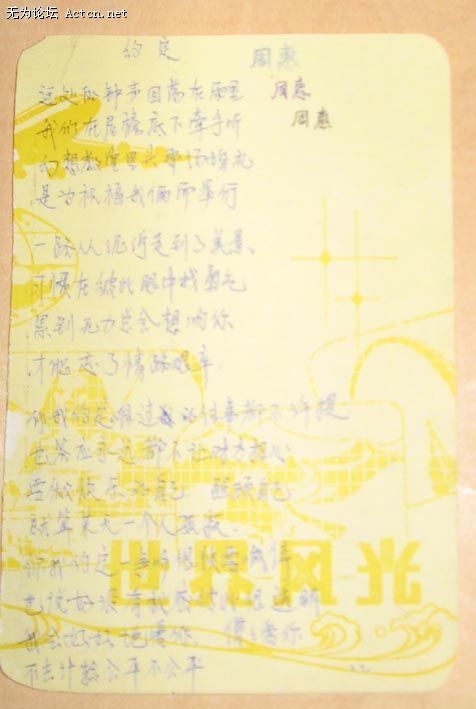 无为论坛 Actcn.net
约定 周惠
周惠
周惠
远处的钟声回荡在雨里
我们在屋檐底下牵手听
幻想教堂里头那场婚礼
是为祝福我俩而举行
一路从泥泞走到了美景、
习惯在彼此眼中找勇气
累到无力总会想吻你
才能忘了情路艰辛.
你我约定难过的往事都不许提
也答应永远都不让对方担心
要做快乐的自己 照顾自己
就算某天一个人孤寂.
你我约定一争吵很快要
也说好没有秘密彼此很透明
我会好好地爱你. 傻傻爱你
不去计较公平不公平
世界风光